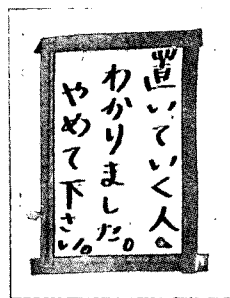 置いていく人。
わかりました。
やめて下さい。